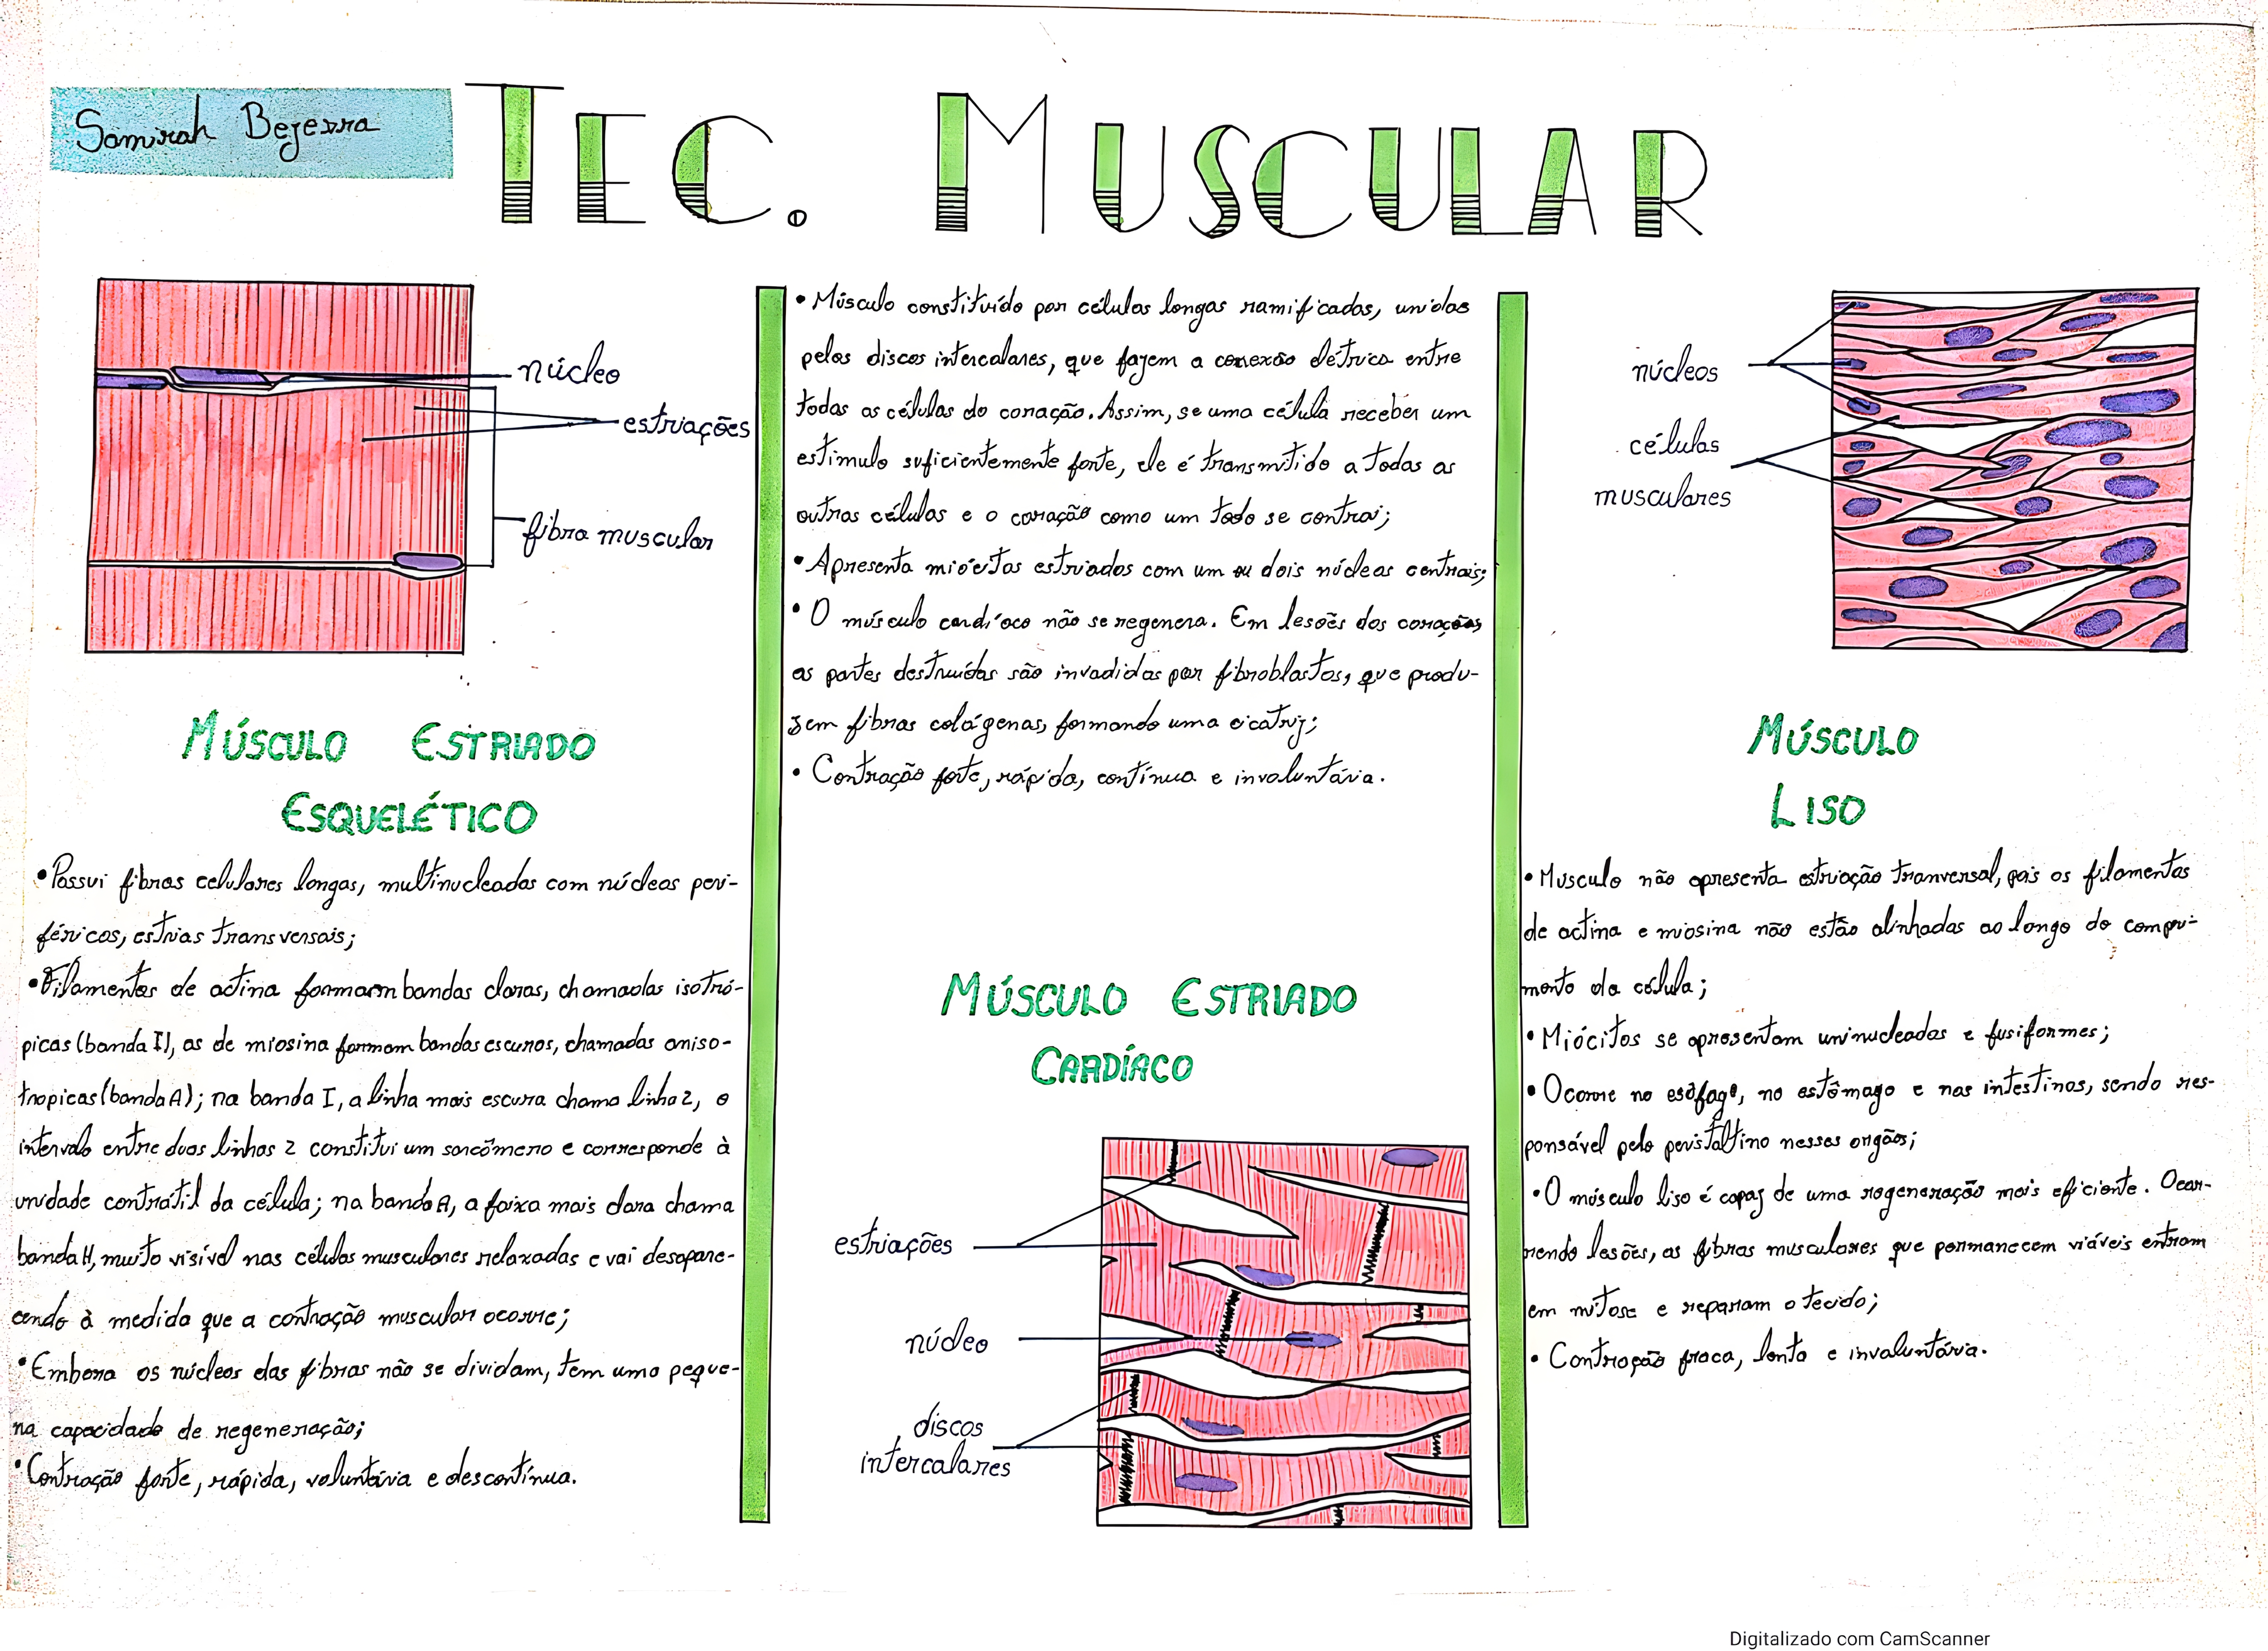 Samirah Bezerra
TEC. MUSCULAR
núcleo
estriações
fibra muscular
MÚSCULO ESTRIADO
ESQUELÉTICO
• Possui fibras celulares longas, multinucleadas com núcleos peri-
féricos, estrias transversais;
• Filamentos de actina formam bandas claras, chamadas isotró-
picas (banda I), as de miosina formam bandas escuras, chamadas aniso-
tropicas (banda A); na banda I, a linha mais escura chama linha Z, o
intervalo entre duas linhas Z constitui um sarcômero e corresponde à
unidade contrátil da célula; na banda A, a faixa mais clara chama
banda H, muito visível nas células musculares relaxadas e vai desapare-
cendo à medida que a contração muscular ocorre;
• Embora os núcleos das fibras não se dividam, tem uma peque-
na capacidade de regeneração;
• Contração forte, rápida, voluntária e descontínua.
• Músculo constituído por células longas ramificadas, unidas
pelos discos intercalares, que fazem a conexão elétrica entre
todas as células do coração. Assim, se uma célula receber um
estimulo suficientemente forte, ele é transmitido a todas as
outras células e o coração como um todo se contrai;
• Apresenta miócitos estriados com um ou dois núcleos centrais;
• O músculo cardíaco não se regenera. Em lesões dos corações,
as partes destruídas são invadidas por fibroblastos, que produ-
zem fibras colágenas, formando uma cicatriz;
• Contração forte, rápida, contínua e involuntária.
MÚSCULO ESTRIADO
CARDÍACO
estriações
núcleo
discos
intercalares
núcleos
células
musculares
MÚSCULO
LISO
• Musculo não apresenta estriação tranversal, pois os filamentos
de actina e miosina não estão alinhadas ao longo do compri-
mento da célula;
• Miócitos se apresentam uninucleados e fusiformes;
• Ocorre no esôfago, no estômago e nas intestinos, sendo res-
ponsável pelo peristaltino nesses orgãos;
• O músculo liso é capaz de uma regeneração mais eficiente. Ocor-
rendo lesões, as fibras musculares que permanecem viáveis entram
em mitose e reparam o tecido;
• Contração fraca, lenta e involuntária.
Digitalizado com CamScanner